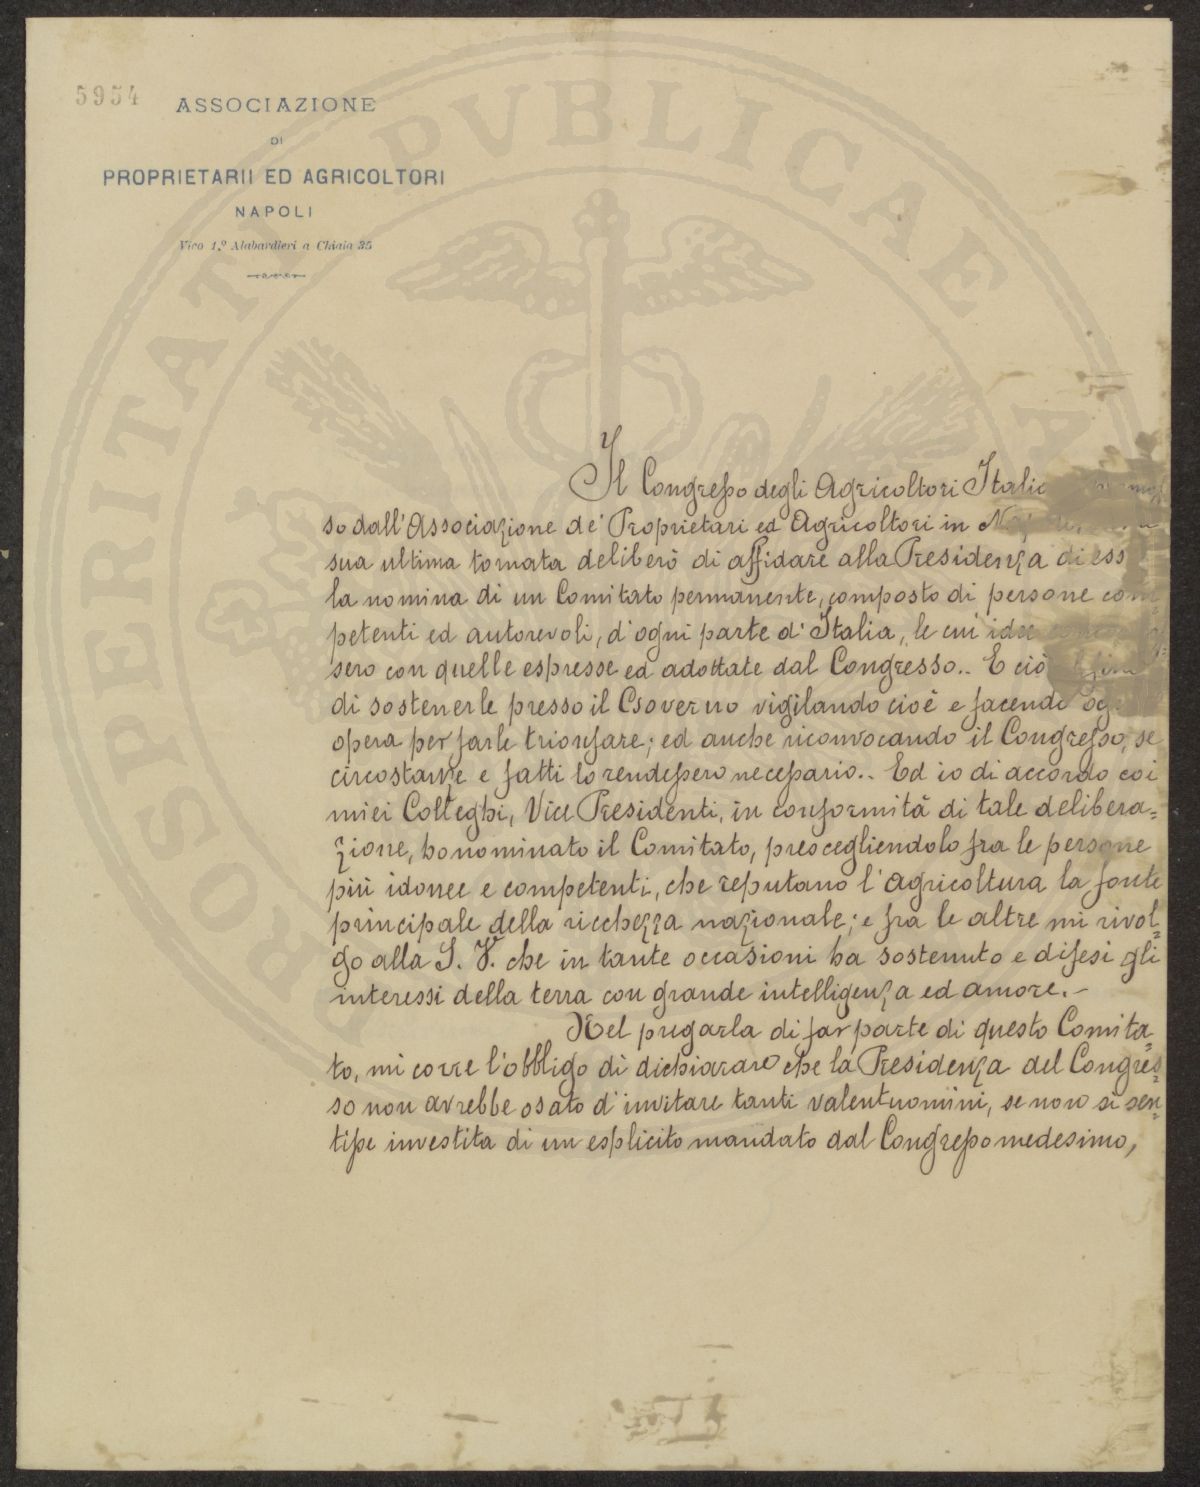 5954
ASSOCIAZIONE
DI
PROPRIETARII ED AGRICOLTORI
NAPOLI
Vico 1.º Alabardieri a Chiaia 35
PROSPERITATI PVBLICAE
Il Congresso degli Agricoltori
so dall'Associazione de' Proprietari ed Agricoltori in
sua ultima tornata deliberò di affidare alla Presidenza di
la nomina di un Comitato permanente, composto di persone com=
petenti ed autorevoli, d'ogni parte d'Italia, le cui idee
sero con quelle espresse ed adottate dal Congresso.. E ciò
di sostenerle presso il Governo vigilando cioè e facendo
opera per farle trionfare; ed anche riconvocando il Congresso, se
circostanze e fatti lo rendessero necessario.. Ed io di accordo coi
miei Colleghi, Vice Presidenti, in conformità di tale delibera=
zione, ho nominato il Comitato, prescegliendolo fra le persone
più idonee e competenti, che reputano l'agricoltura la fonte
principale della ricchezza nazionale; e fra le altre mi rivol=
go alla S. V. che in tante occasioni ha sostenuto e difesi gli
interessi della terra con grande intelligenza ed amore.-
Nel pregarla di far parte di questo Comita=
to, mi corre l'obbligo di dichiarare che la Presidenza del Congres=
so non avrebbe osato d'invitare tanti valentuomini, se non si sen=
tisse investita di un esplicito mandato dal Congresso medesimo,